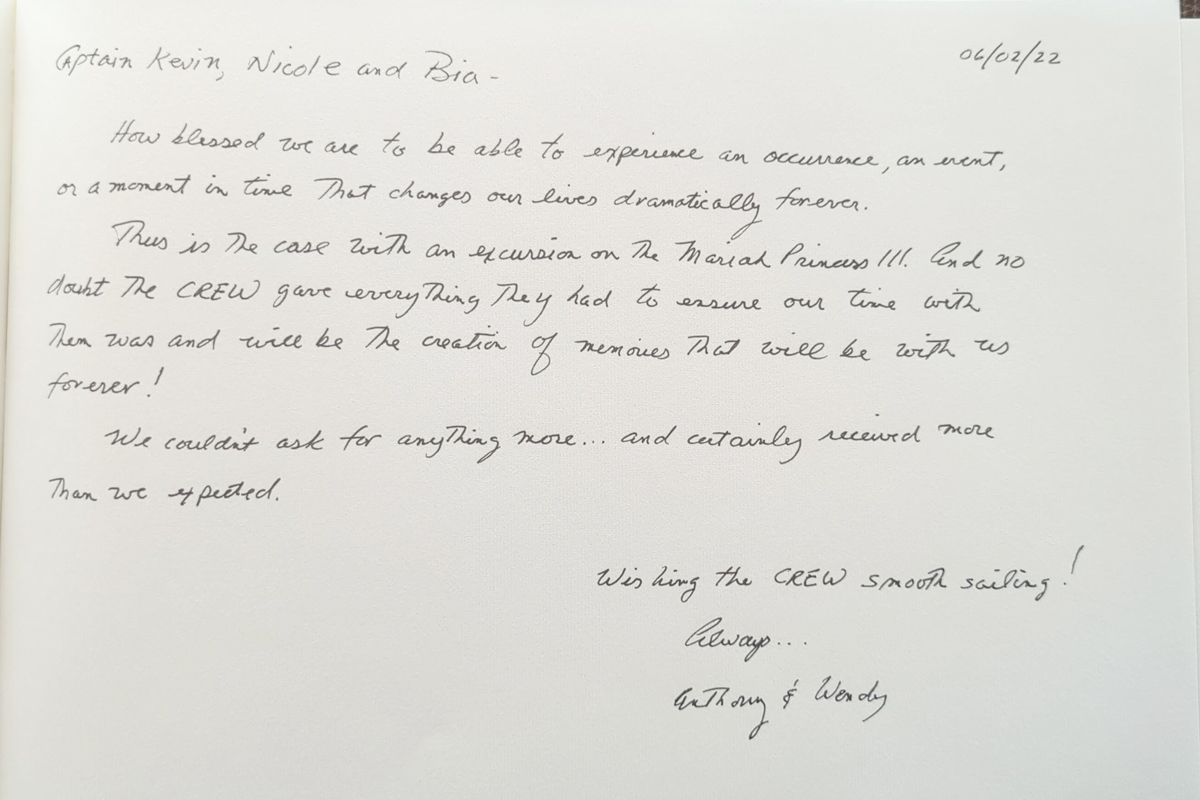 06/02/22
Captain Kevin, Nicole and Bia -
How blessed we are to be able to experience an occurrence, an event,
or a moment in time That changes our lives dramatically forever.
Thus is The case with an excursion on The Mariah Princess III. And no
doubt The CREW gave everyThing They had to ensure our time with
Them was and will be The creation of memories That will be with us
forever!
We couldn't ask for anyThing more... and certainly received more
Than we expected.
Wishing the CREW smooth sailing!
Always...
Anthony & Wendy